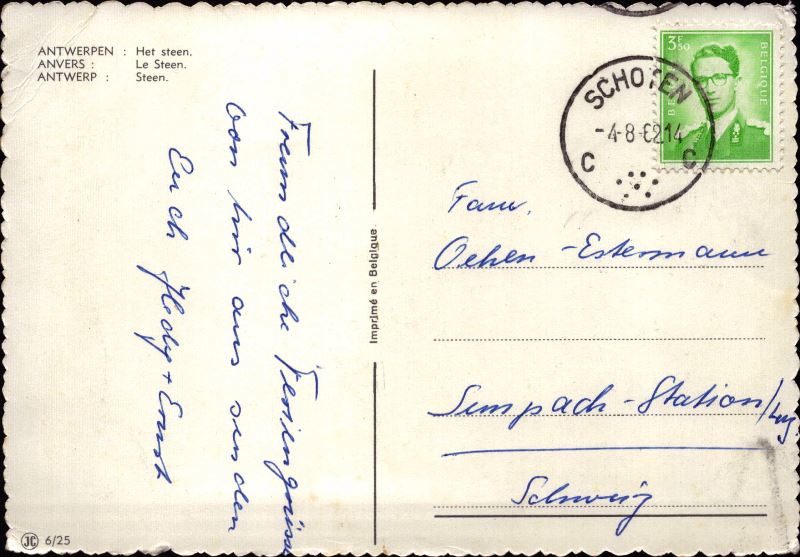 ANTWERPEN : Het steen.
ANVERS : Le Steen.
ANTWERP : Steen.
Freundliche Feriengrüsse
von hier aus senden
Euch Hedy + Ernst
Imprimé en Belgique
JC 6/25
3F50
BELGIQUE
SCHOTEN
-4-8-6214
C C
Fam.
Oehen-Estermann
Sempach-Station/Luz.
Schweiz